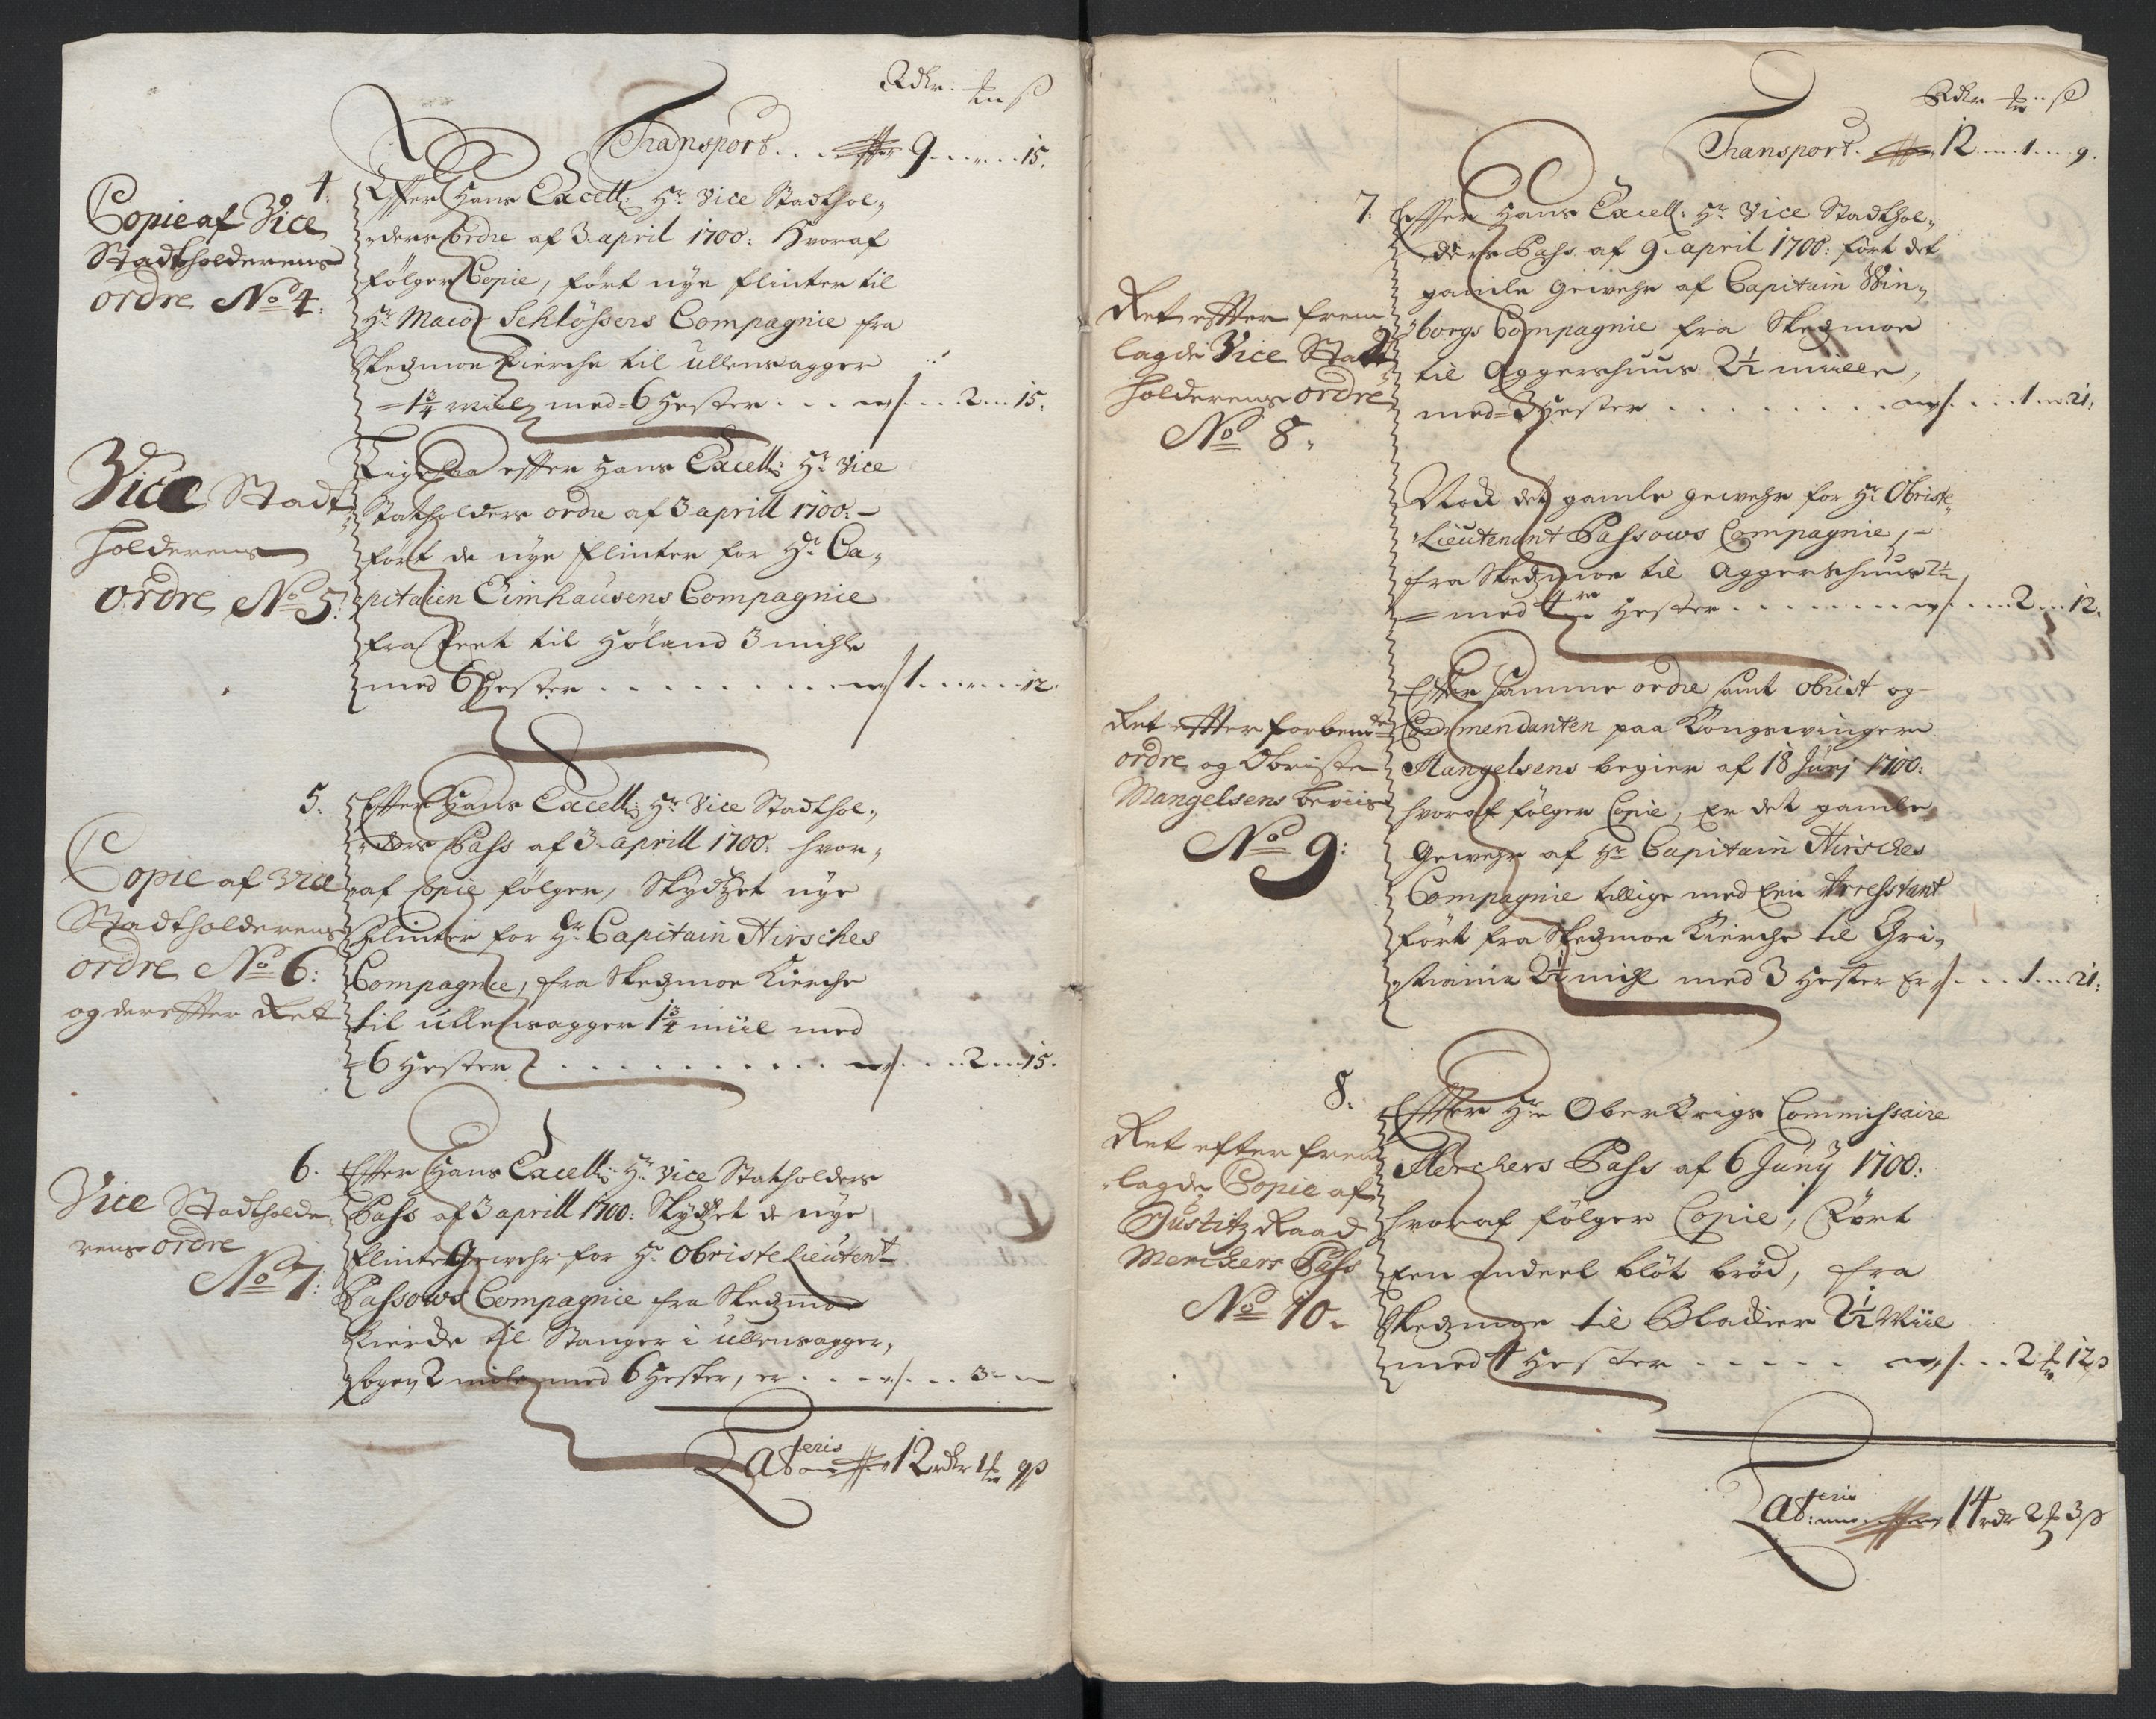 Rdlr. ß
Transport. . . 9 . . . . . 15.
4.
Copie af Vice
Stadtholderens
ordre No 4:
Effter Hans Excell: Hr Vice Stadthol-
ders ordre af 3. april 1700: Hvoraf
følger Copie, ført nye flinter til
Hr Maior Schlössers Compagnie fra
Skedzmoe Kierche til ullensagger
1 3/4 miil med 6 Hester . . . 2 . . 15.
Vice Stadt
holderens
ordre No 5:
Ligesaa effter Hans Excell: Hr Vice
Statholders ordre af 3 aprill 1700. –
ført de nye flinter for Hr Ca-
pitaien Eimhausens Compagnie
fra til Høland 3 mihle
med 6 Hester . . . . . . . . 1 . . . . 12.
5.
Copie af Vice
Stadtholderens
ordre No 6:
og dereffter Ret
Effter Hans Excell: Hr Vice Stadthol-
ders Pass af 3. aprill 1700: hvor-
af Copie følger, Skydzet nye
flinter for Hr Capitain Hirsches
Compagnie, fra Skedzmoe Kierche
til ullensagger 1 3/4 miil med
6 Hester . . . . . . . . . . . 2 . . 15.
6.
Vice Stadtholde-
rens ordre
No 7:
Effter Hans Excell: Hr Vice Statholders
Pass af 3 aprill 1700: Skydzet de nye
flinte Gewehr for Hr Obriste Lieutent
Passows Compagnie fra Skedzmoe
Kierche til Stanger i ullensagger,
2 mile med 6 Hester, er . . . . . . 3 – –
Lateris 12 rdlr 1 9 ß
Rdlr ß
Transport. 12 . . . 1 . . . 9.
7:
Ret effter frem
lagde Vice Stadt
holderens ordre
No 8.
Effter Hans Excell: Hr Vice Stadthol-
ders Pass af 9. april 1700: ført det
gamle Geweher af Capitain Win-
borgs Compagnie fra Skedzmoe
til Aggershuus 2 1/2 miille,
med 3 Hester . . . . . . . . . . 1 . . 21.
Nock det gamle gewehr for Hr Obriste
Lieutenant Passows Compagnie, –
fra Skedzmoe til Aggershuus 2 1/2
med 4re Hester . . . . . . . . . . 2 . . 12.
Ret effter forbemte
ordre og Obriste
Mangelsens beviis
No 9:
Effter samme ordre samt obrist og
Commendanten paa Kongswingern
Mangelsens begier af 18 Junj 1700:
hvoraf følger Copie, Er det gamle
Gewehr af Hr Capitain Hirsches
Compagnie tillige med Een Arresstant
ført fra Skedzmoe Kierche til Chri-
stiania 2 1/2 miil med 3 Hester Er . . . 1 . . 21.
8.
Ret efter frem
lagde Copie af
Justitz Raad
Merckers Pass
No 10.
Effter Hr Ober Krigs Commissaire
Merchers Pass af 6 Junÿ 1700:
hvoraf følger Copie, Ført
Een andeel bløt brød, fra
Skedzmoe til Bladier 2 1/2 Miil
med 4 Hester . . . . . . . . . 2 12 ß
Lateris 14 rdr 2 3 ß